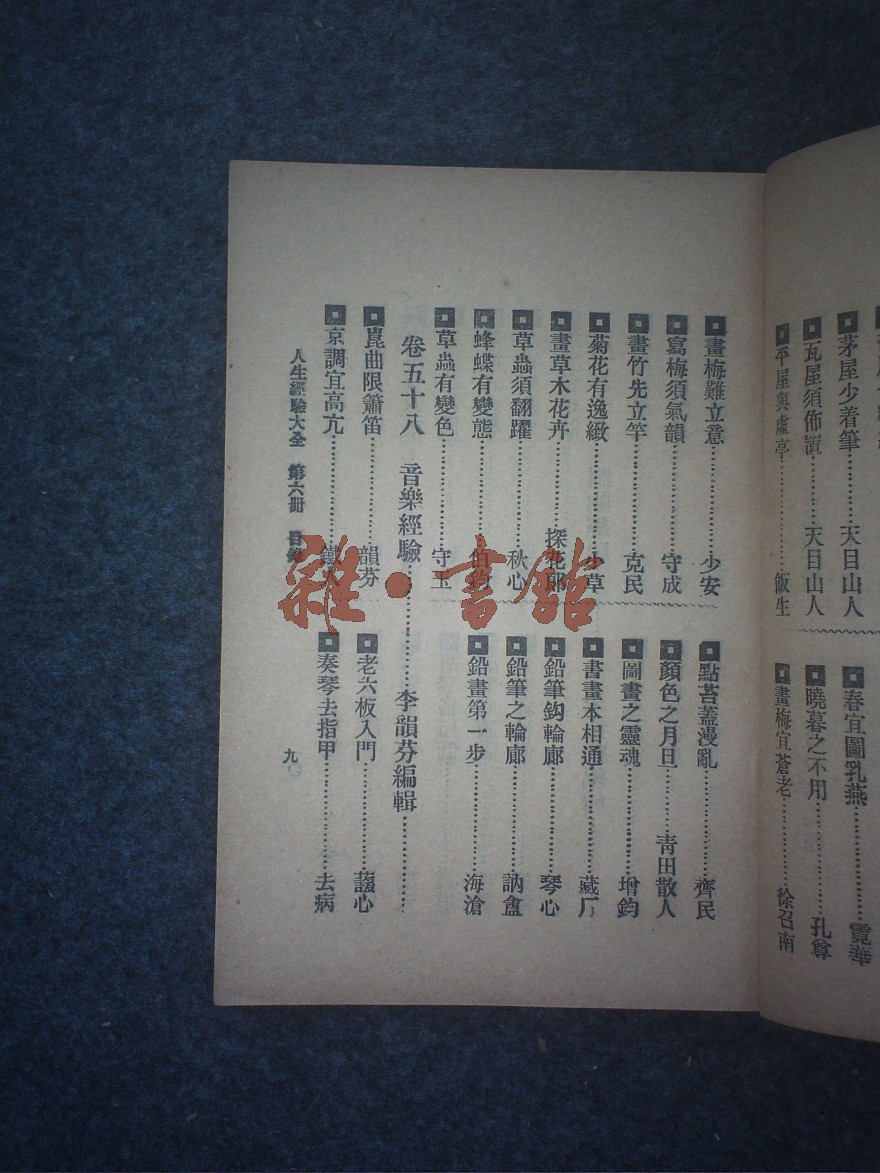 茅屋少着筆……天目山人
瓦屋須佈置……天目山人
平屋與虛亭……飯生
春宜圖乳燕……霓華
曉暮之不用……孔尊
畫梅宜蒼老……徐召南
畫梅難立意……少安
寫梅須氣韻……守成
畫竹先立竿……克民
菊花有逸緻……少草
畫草木花卉……探花郎
草蟲須翻躍……秋心
蜂蝶有變態……伯鈞
草蟲有變色……守玉
點苔蓋漫亂……齊民
顏色之月旦……靑田散人
圖畫之靈魂……增鈞
書畫本相通……藏厂
鉛筆鈎輪廊……琴心
鉛筆之輪廊……訥盦
鉛畫第一步……海滄
卷五十八 音樂經驗……李韻芬編輯……
崑曲限簫笛……韻芬
京調宜高亢……鐵
老六板入門……護心
奏琴去指甲……去病
人生經驗大全 第六冊 目錄
九〇
雜·書館